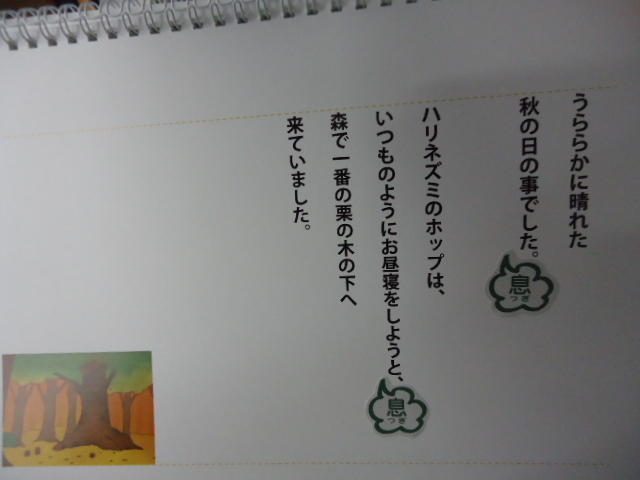 うららかに晴れた
秋の日の事でした。
息つぎ
ハリネズミのホップは、
いつものようにお昼寝をしようと、
息つぎ
森で一番の栗の木の下へ
来ていました。